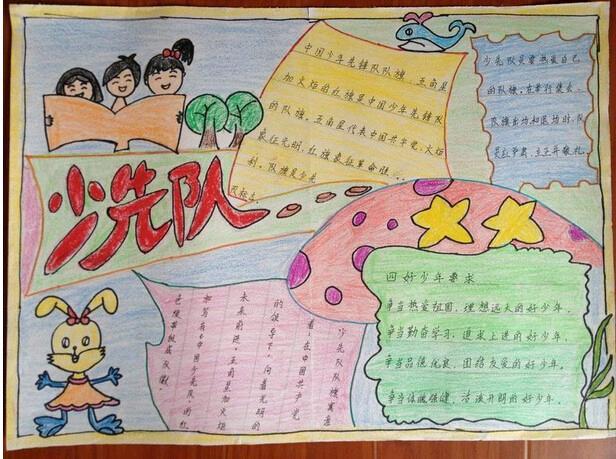 少先队
中国少年先锋队队旗，五角星
加火炬的红旗是中国少年先锋队
的队旗。五角星代表中国共产党，火炬
象征光明，红旗象征革命胜
利。队旗是少先
队标志.
少先队员要热爱自己
的队旗。在举行集会，
队旗出场和退场时，队
员应严肃，立正并敬礼。
少先队队旗寓意
着：在中国共产党
的领导下，向着光明的
未来前进。五角星加火炬
和写有“中国少先队”的红
色绶带组成队徽。
四好少年要求
争当热爱祖国，理想远大的好少年，
争当勤奋学习，追求上进的好少年，
争当品德优良，团结友爱的好少年，
争当体魄强健，活泼开朗的好少年。